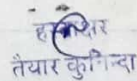 हस्ताक्षर
तैयार कुनिन्दा